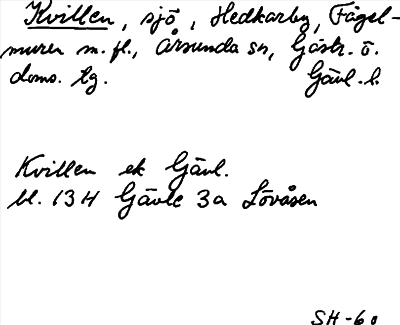 Kvillen, sjö, Hedkarby, Fågel-
muren m.fl., Årsunda sn, Gästr. ö.
doms. tg. Gävl. l.
Kvillen ek Gävl.
bl. 13H Gävle 3a Lövåsen
SH-60